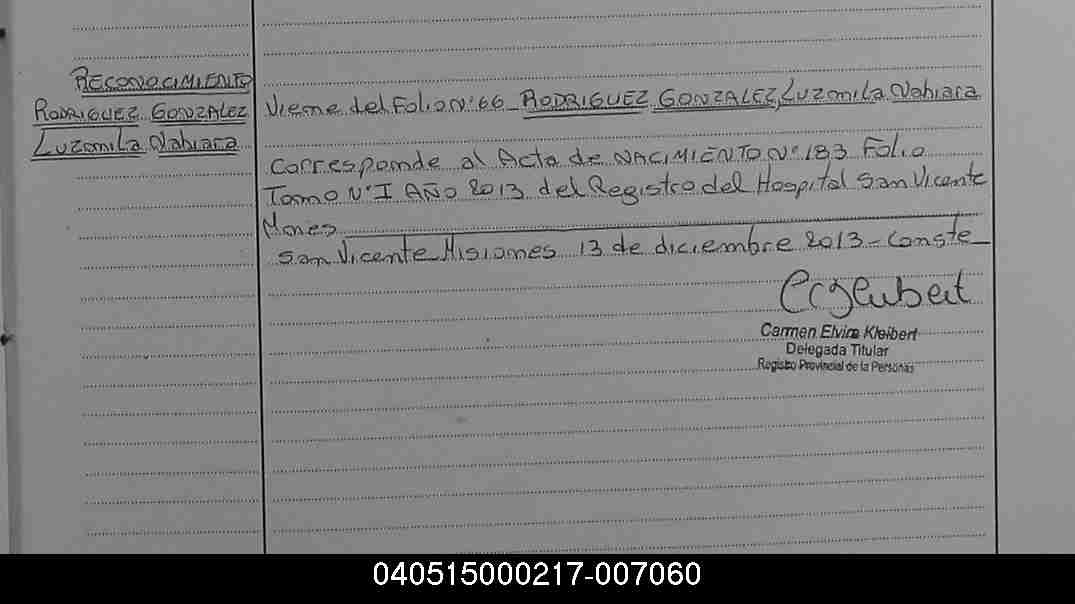 RECONOCIMIENTO
RODRIGUEZ GONZALEZ
Luzmila Nahiara
Viene del Folio N° 66 RODRIGUEZ GONZALEZ, Luzmila Nahiara
Corresponde al Acta de NACIMIENTO N° 183 Folio
Tomo N° I AÑO 2013 del Registro del Hospital San Vicente
Mnes
San Vicente Misiones 13 de diciembre 2013 - Conste
Carmen Elvira Kleibert
Delegada Titular
Registro Provincial de la Personas
040515000217-007060